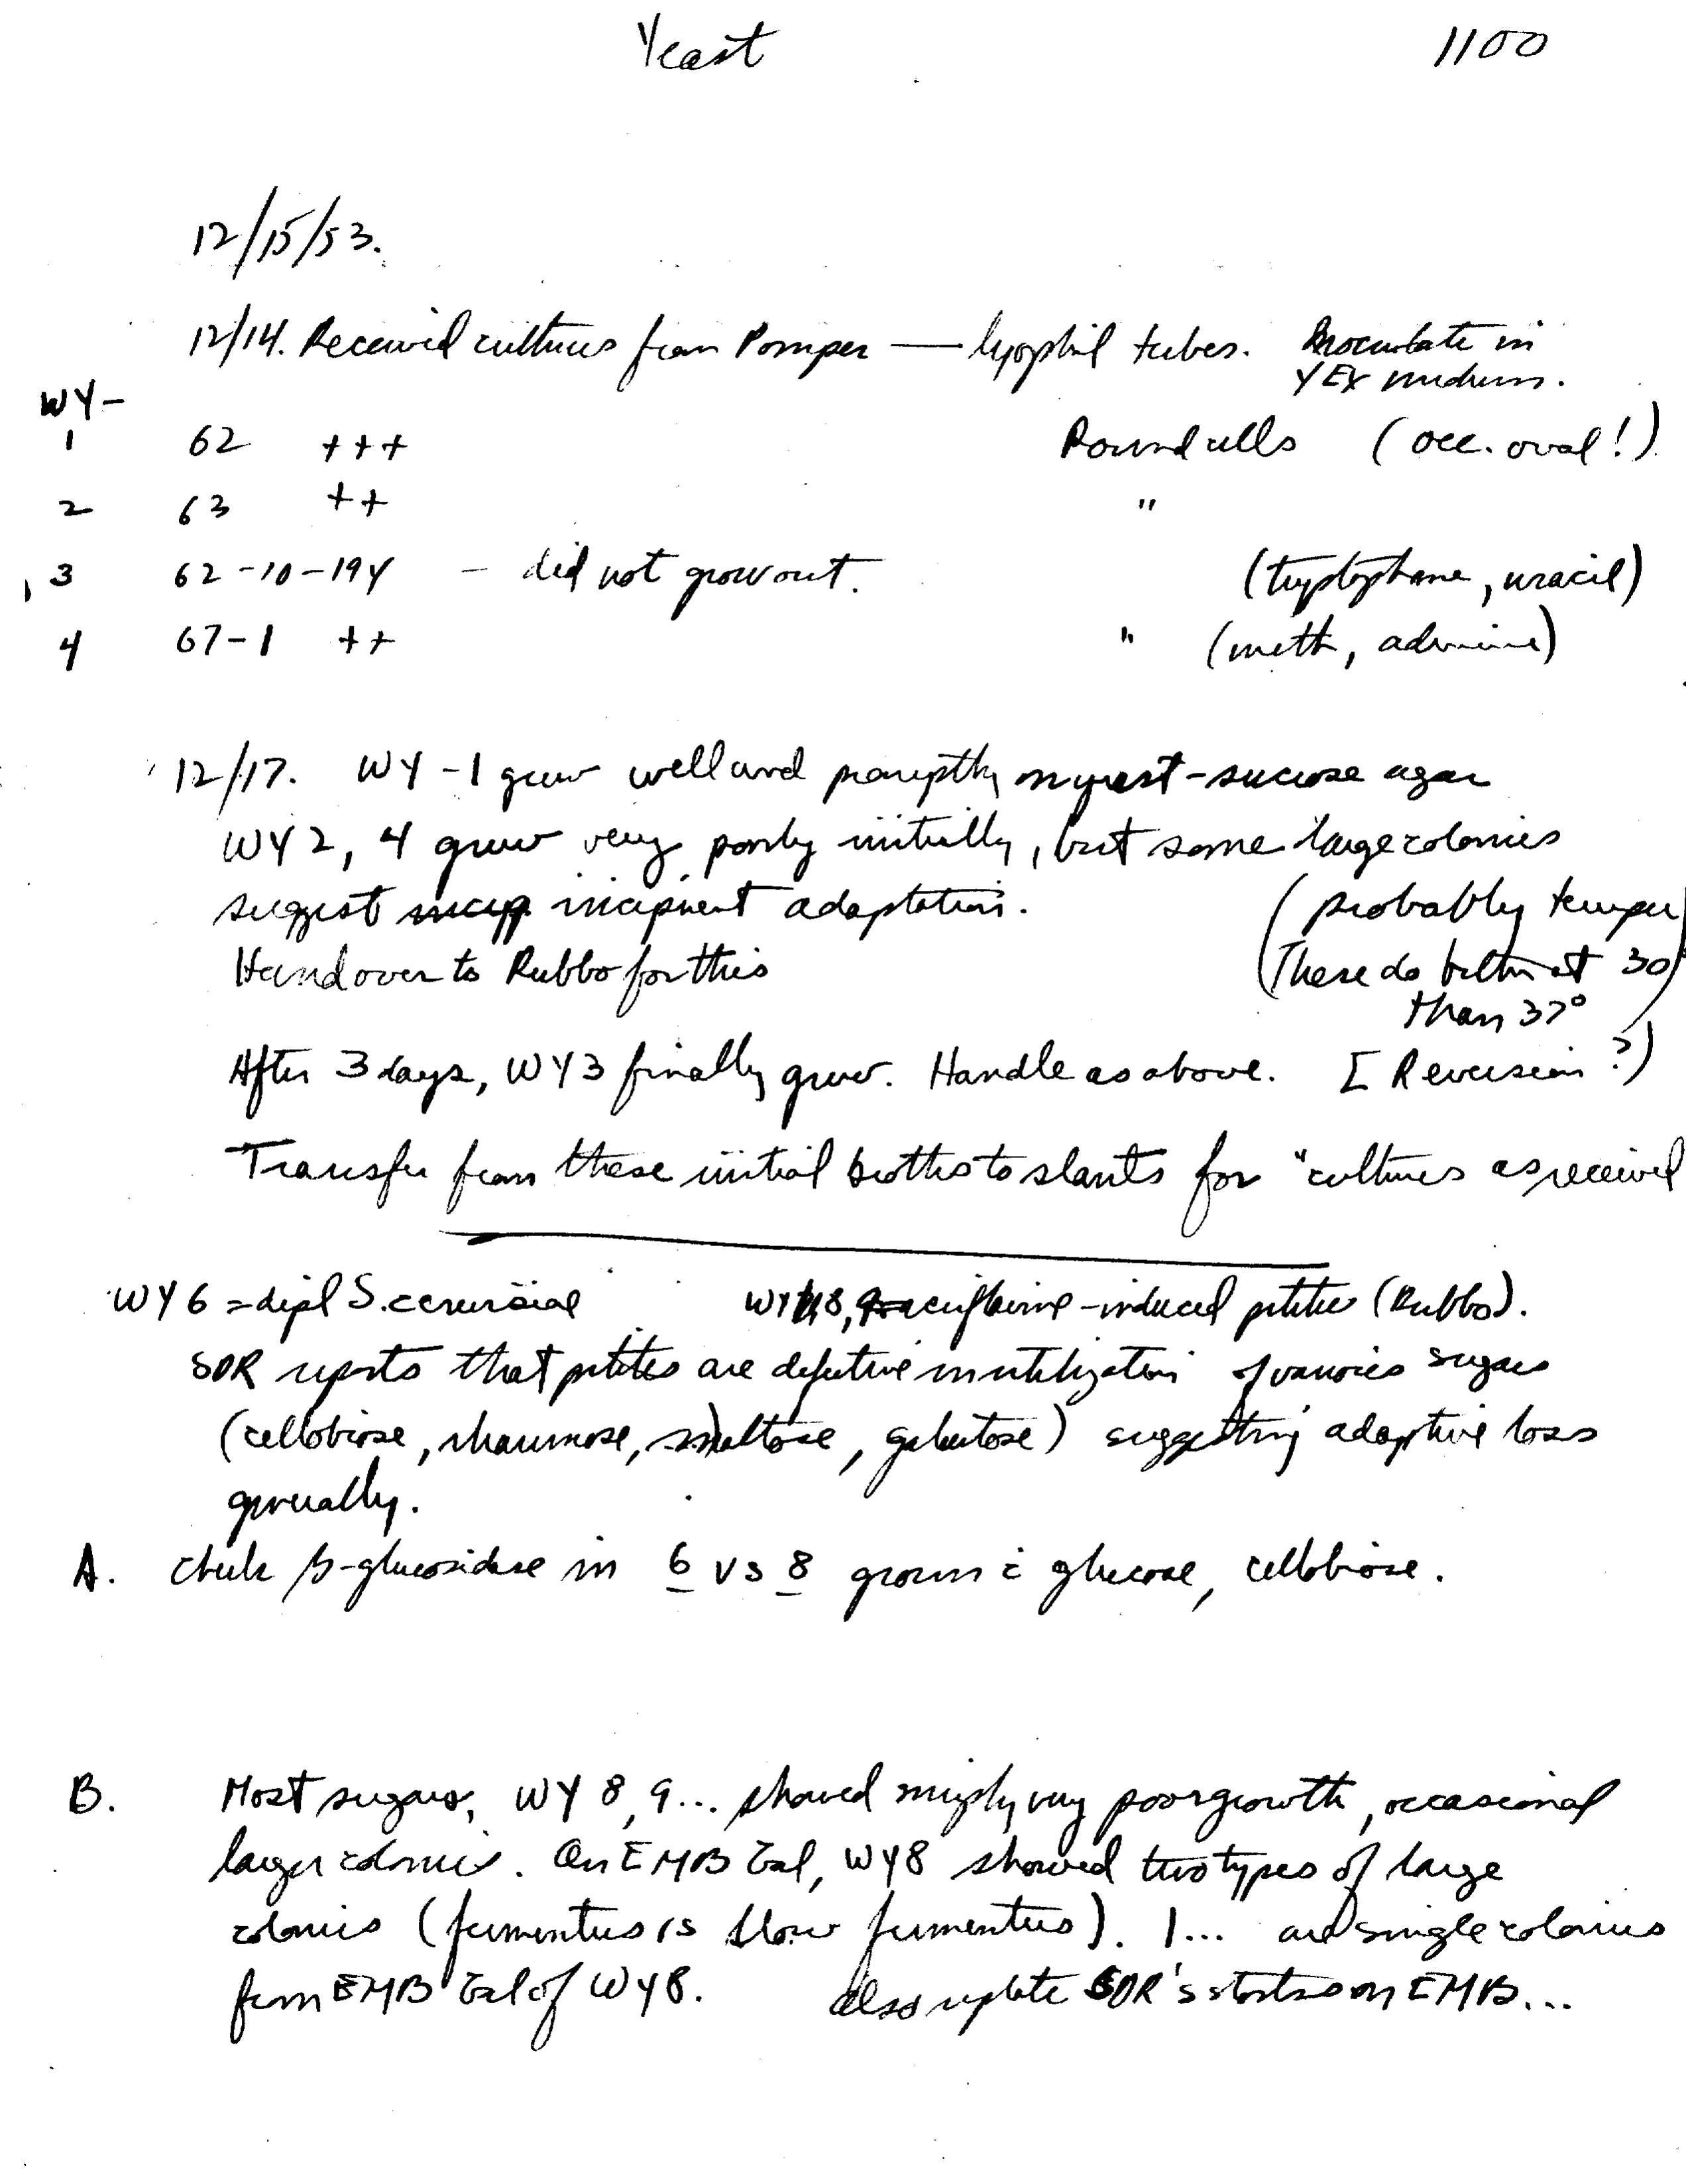 Yeast 1100
12/15/53.
12/14. Received cultures from Pomper — lyophil tubes. Inoculate in
YEx medium.
WY-
1 62 +++ Round cells (occ. oval!)
2 63 ++ "
3 62-10-194 - did not grow out. (tryptophane, uracil)
4 67-1 ++ " (meth, adenine)
12/17. WY-1 grew well and promptly on yeast-sucrose agar
WY2, 4 grew very poorly initially, but some large colonies
suggest incipient adaptation. (probably temper
Hand over to Rubbo for this (These do better at 30
than 37°
After 3 days, WY3 finally grew. Handle as above. [Reversion?)
Transfer from these initial broths to slants for "cultures as received
WY6 = dipl S. cerevisiae WY 8, acriflavine-induced petites (Rubbo).
SDR reports that petites are defective in utilization of various sugars
(cellobiose, rhamnose, maltose, galactose) suggesting adaptive loss
generally.
A. Check β-glucosidase in 6 vs 8 grown c̄ glucose, cellobiose.
B. Most sugars, WY 8, 9... showed simply very poor growth, occasional
larger colonies. On EMB Gal, WY8 showed two types of large
colonies (fermenters vs slow fermenters). 1... are single colonies
from EMB Gal of WY8. Also SDR's on EMB...